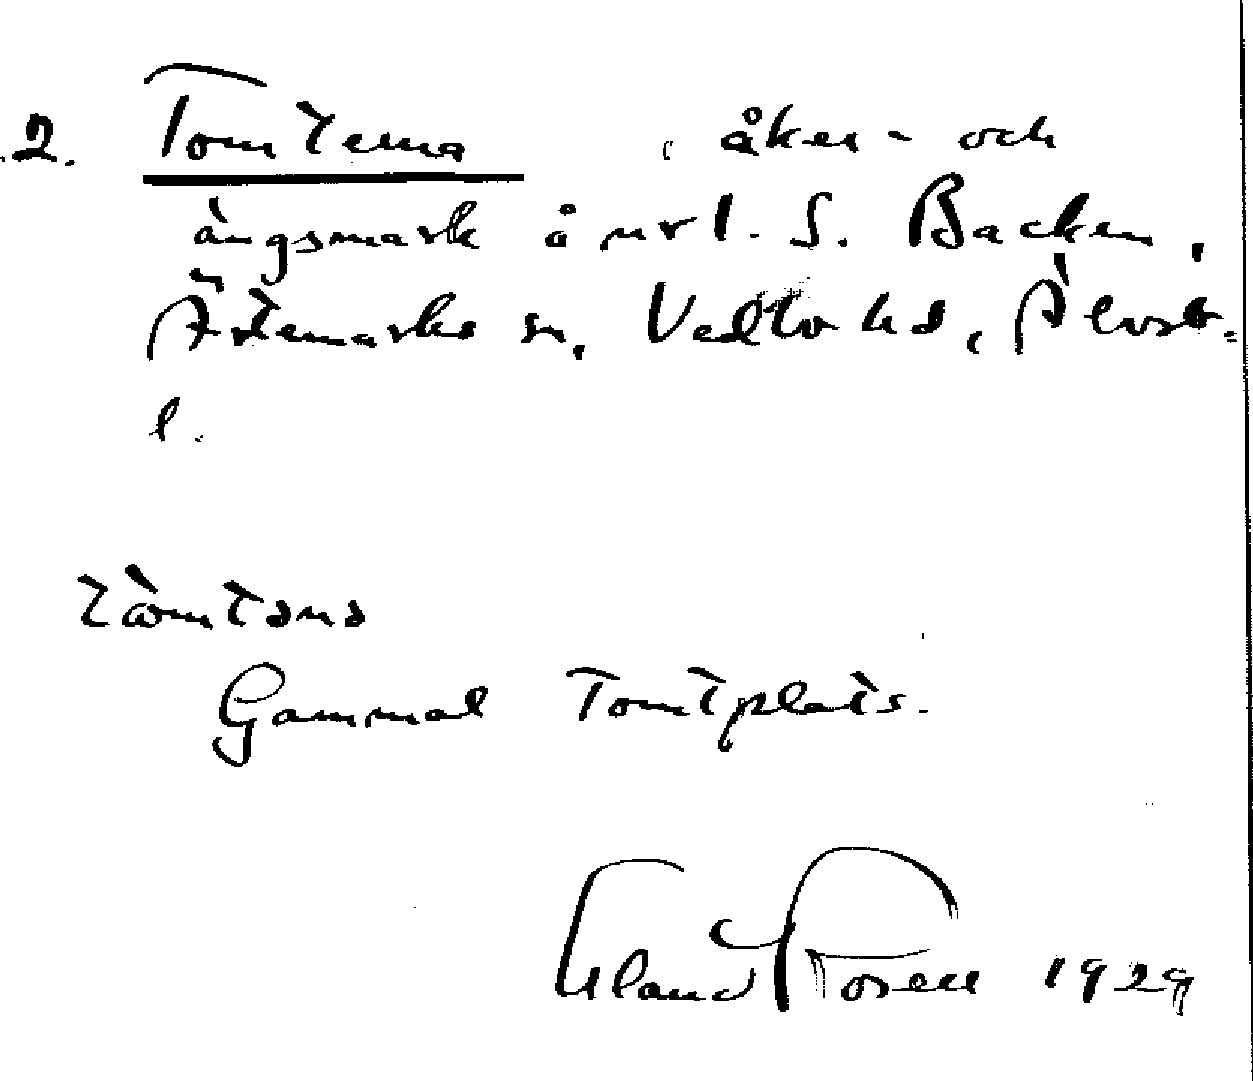 2. Tomterna , åker- och
ängsmark å nr 1. S. Backen,
Ärtemarks sn, Vedbo hd, Älvsb.
l.
tòmtəna
Gammal Tomtplats.
Erland Rosell 1929